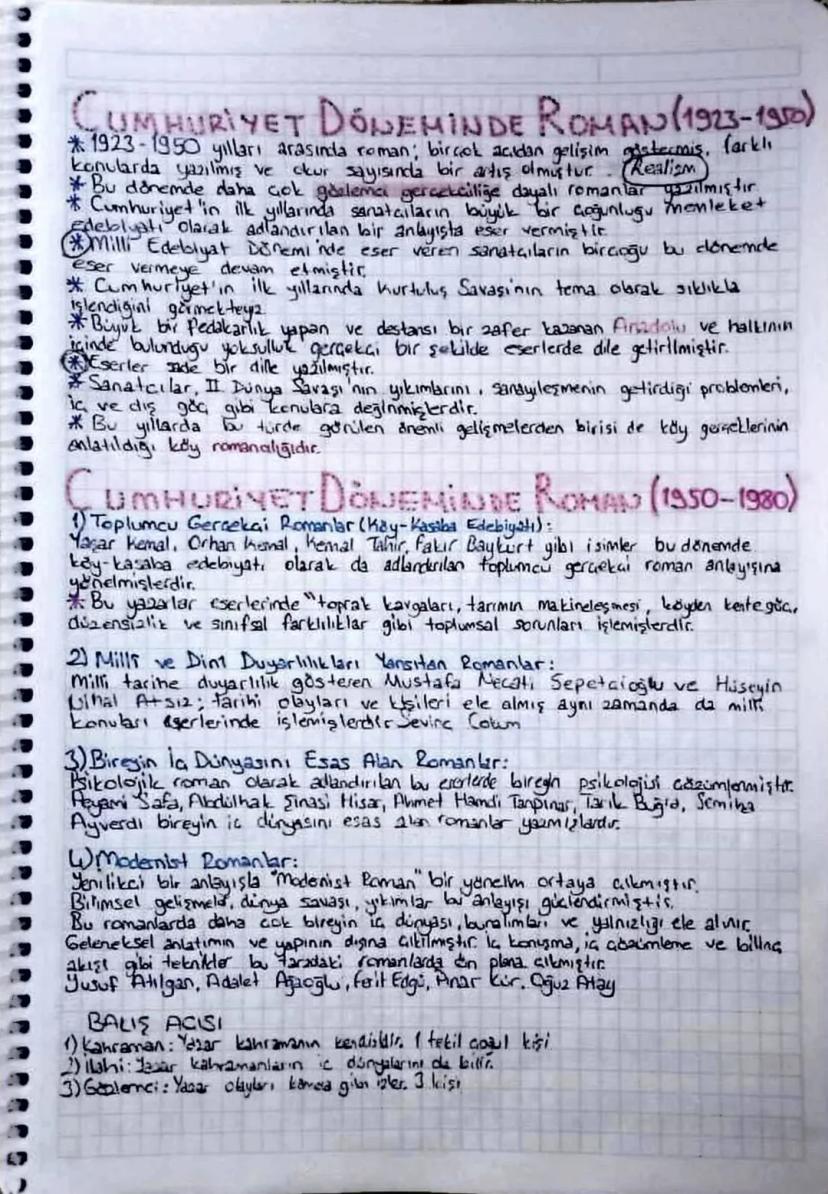 CUMHURİYET DÖNEMİNDE ROMAN (1923-1950)
* 1923-1950 yılları arasında roman; birçok açıdan gelişim göstermiş, farklı
konularda yazılmış ve okur sayısında bir artış olmuştur. (Realizm)
* Bu dönemde daha çok gözlemci gerçekçiliğe dayalı romanlar yazılmıştır
* Cumhuriyet'in ilk yıllarında sanatçıların büyük bir çoğunluğu memleket
edebiyatı olarak adlandırılan bir anlayışta eser vermiştir.
* Milli Edebiyat Dönemi'nde eser veren sanatçıların birçoğu bu dönemde
eser vermeye devam etmiştir.
* Cumhuriyet'in ilk yıllarında Kurtuluş Savaşı'nın tema olarak sıklıkla
işlendiğini görmekteyz
* Büyük bir fedakarlık yapan ve destansı bir zafer kazanan Anadolu ve halkının
içinde bulunduğu yoksulluk gerçekçi bir şekilde eserlerde dile getirilmiştir.
* Eserler sade bir dille yazılmıştır.
* Sanatçılar, II. Dünya Savaşı'nın yıkımlarını, sanayileşmenin getirdiği problemleri,
iç ve dış göç gibi konulara değinmişlerdir.
* Bu yıllarda bu türde görülen önemli gelişmelerden birisi de köy gerçeklerinin
anlatıldığı köy romancılığıdır.
CUMHURİYET DÖNEMİNDE ROMAN (1950-1980)
1) Toplumcu Gerçekçi Romanlar (Köy-Kasaba Edebiyatı):
Yaşar Kemal, Orhan Kemal, Kemal Tahir, Fakir Baykurt gibi isimler bu dönemde
köy-kasaba edebiyatı olarak da adlandırılan toplumcu gerçekçi roman anlayışına
yönelmişlerdir.
* Bu yazarlar eserlerinde "toprak kavgaları, tarımın makineleşmesi, köyden kente göç,
düzensizlik ve sınıfsal farklılıklar gibi toplumsal sorunları işlemişlerdir.
2) Milli ve Dini Duyarlılıkları Yansıtan Romanlar:
Milli tarihe duyarlılık gösteren Mustafa Necati Sepetçioğlu ve Hüseyin
Nihal Atsız; tarihi olayları ve kişileri ele almış aynı zamanda da milli
konuları eserlerinde işlemişlerdir Sevinç Çokum
3) Bireyin İç Dünyasını Esas Alan Romanlar:
Psikolojik roman olarak adlandırılan bu eserlerde bireyin psikolojisi çözümlenmiştir.
Peyami Safa, Abdülhak Şinasi Hisar, Ahmet Hamdi Tanpınar, Tarık Buğra, Semiha
Ayverdi bireyin iç dünyasını esas alan romanlar yazmışlardır.
4) Modernist Romanlar:
Yenilikçi bir anlayışla "Modenist Roman" bir yönelim ortaya çıkmıştır.
Bilimsel gelişmeler, dünya savaşı, yıkımlar bu anlayışı güçlendirmiştir.
Bu romanlarda daha çok bireyin iç dünyası, bunalımları ve yalnızlığı ele alınır
Geleneksel anlatımın ve yapının dışına çıkılmıştır iç konuşma, iç çözümleme ve bilinç
akışı gibi teknikler bu tarzdaki romanlarda ön plana çıkmıştır.
Yusuf Atılgan, Adalet Ağaoğlu, Ferit Edgü, Pınar Kür, Oğuz Atay
BALIŞ AÇISI
1) Kahraman: Yazar kahramanın kendisidir. 1 tekil çoğul kişi
2) ilahi: Yazar kahramanların iç dünyalarını da bilir.
3) Gözlemci: Yazar olayları kamera gibi izler. 3. kişi